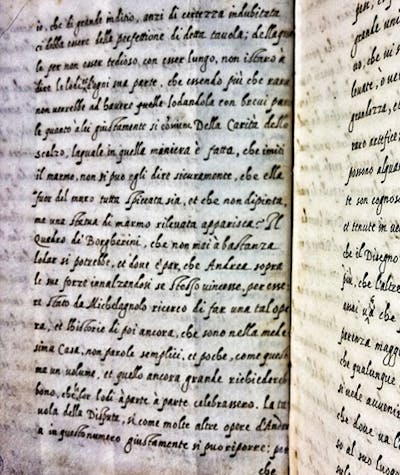 io, che di grande inditio, anzi di certezza indubitata
ci debba essere della perfettione di detta tavola; della
le per non esser tedioso, con esser lungo, non istarò a
dire le lodi d'ogni sua parte, che essendo più che rara
non vorrebbe al havere quelle lodandola con brevi
le quanto à lei giustamente si conviene. Della Carità dello
scalzo, laquale in quella maniera è fatta, che imiti
il marmo, non si puo egli dire sicuramente, che ella
fuor del muro tutta spiccata sia, et che non dipinta,
ma una statua di marmo rilevata apparisca? Il
Quadro di Borgherini, che non mai a bastanza
lodar si potrebbe, et dove è par, che Andrea sopra
le sue forze innalzandosi se stesso vincesse, per esse
re stato da Michelagnolo ricerco di far una tal ope
ra, et l'historie di poi ancora, che sono nella mede
sima Casa, non parole semplici, et poche, come queste
ma un volume, et quello ancora grande richiedereb
bono, che le lor lodi à parte à parte celebrassero. La ta
vola della Disputa, si come molte altre opere d'Andrea
a in questo numero giustamente si può riporre: per
che
grande
no, che
levare, o
grandezza, et
raro artefice:
possono alqua
te son cognos
et tenute in
che il Disegno
più, che l'altez
assai che
parenza maggi
che qualunque
si vede avvenire
che dove va
so al suo luogo